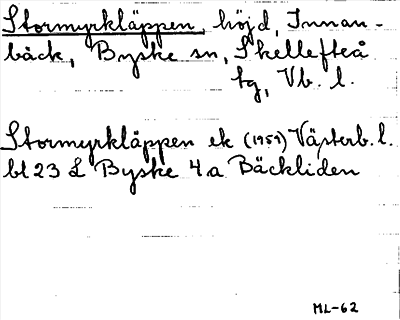 Stormyrkläppen, höjd, Innan-
bäck, Byske sn, Skellefteå
tg, Vb. l.
Stormyrkläppen ek (1959) Västerb. l.
bl 23 L Byske 4a Bäckliden
ML-62